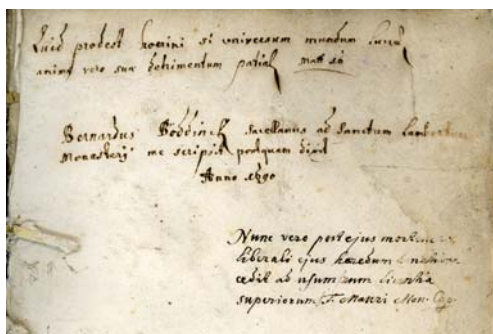 Quid prodest homini si universum mundum lucret
anime vero sue detrimentum patiat Matt 16
Bernardus Boddinck sacellanus ad Sanctum Lambertum
Monasterij me scripsit postquam dixit
Anno 1590
Nunc vero post ejus mortem
liberali ejus hæredum donatione
cedit ad usum licentia
superiorum F. Mauri Mon.